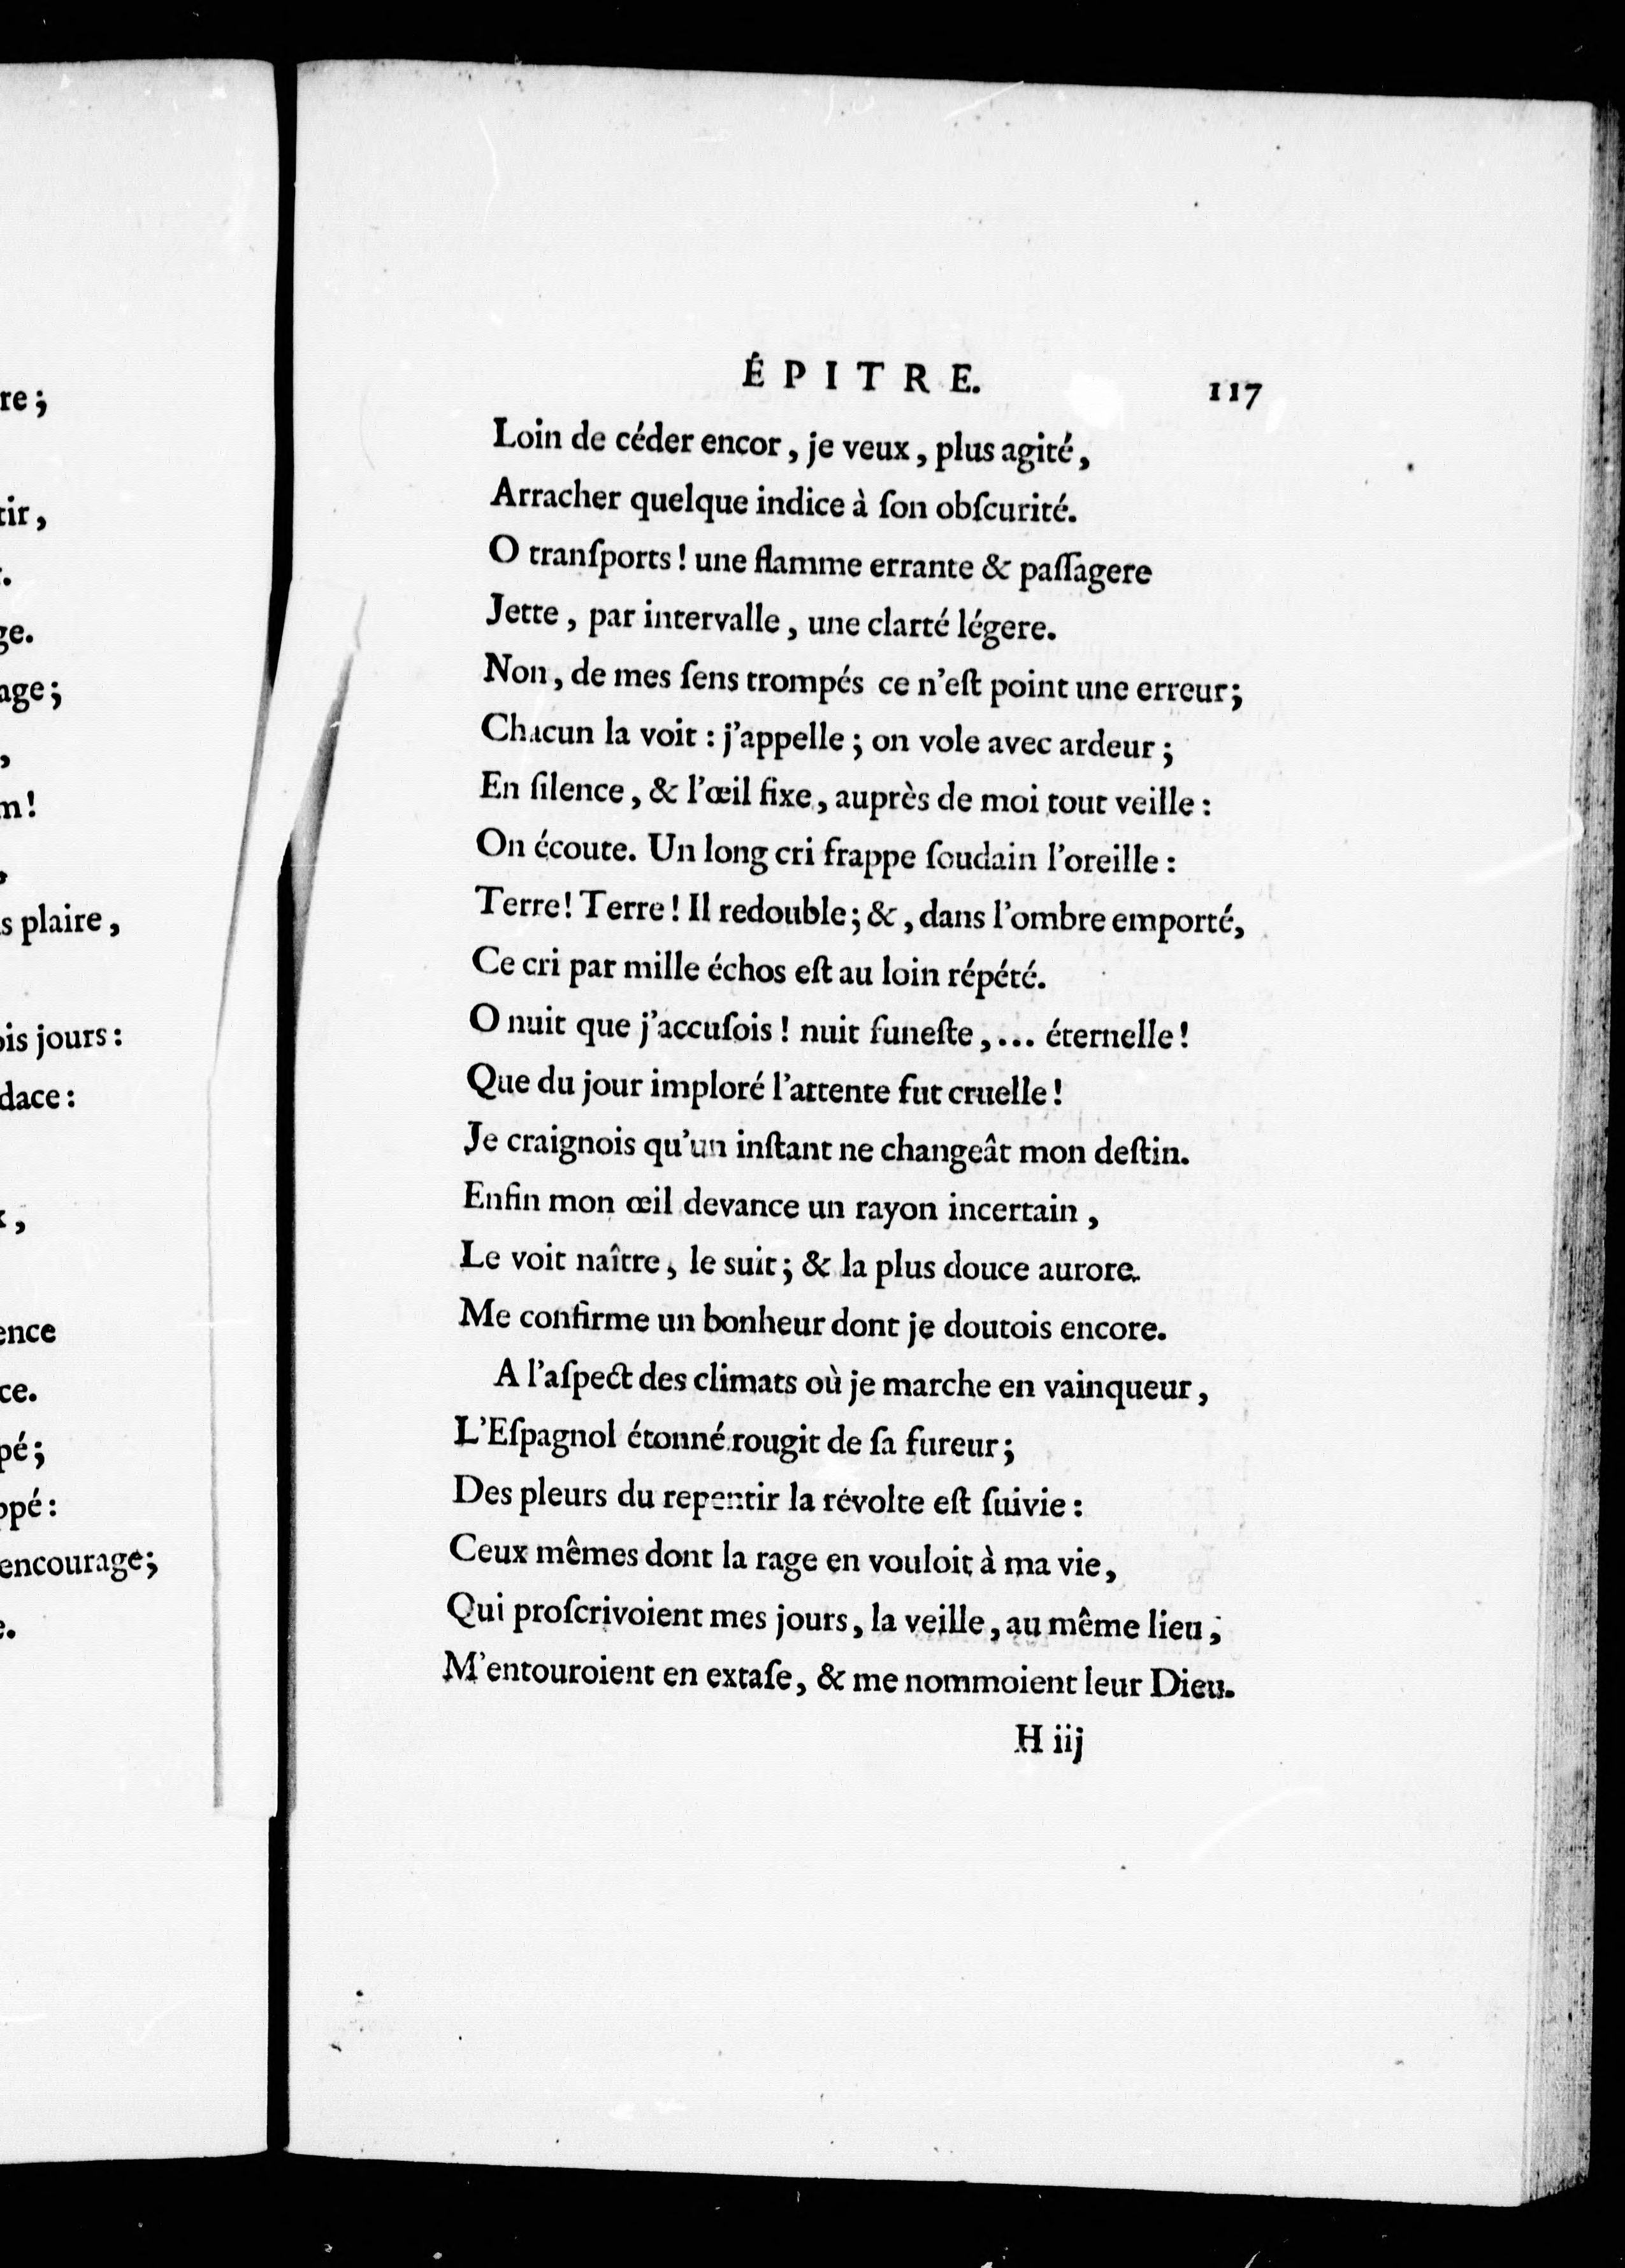 re;
tir,
ge.
age;
m!
s plaire,
ois jours:
dace:
ence
ce.
pé;
ppé:
encourage;
ÉPITRE. 117
Loin de céder encor, je veux, plus agité,
Arracher quelque indice à ſon obſcurité.
O tranſports! une flamme errante & paſſagere
Jette, par intervalle, une clarté légere.
Non, de mes ſens trompés ce n'eſt point une erreur;
Chacun la voit : j'appelle ; on vole avec ardeur ;
En ſilence, & l'œil fixe, auprès de moi tout veille :
On écoute. Un long cri frappe ſoudain l'oreille :
Terre! Terre! Il redouble; &, dans l'ombre emporté,
Ce cri par mille échos eſt au loin répété.
O nuit que j'accuſois ! nuit funeſte,... éternelle !
Que du jour imploré l'attente fut cruelle !
Je craignois qu'un inſtant ne changeât mon deſtin.
Enfin mon œil devance un rayon incertain,
Le voit naître, le suit ; & la plus douce aurore
Me confirme un bonheur dont je doutois encore.
A l'aſpect des climats où je marche en vainqueur,
L'Eſpagnol étonné rougit de ſa fureur;
Des pleurs du repentir la révolte eſt ſuivie :
Ceux mêmes dont la rage en vouloit à ma vie,
Qui proſcrivoient mes jours, la veille, au même lieu,
M'entouroient en extaſe, & me nommoient leur Dieu.
H iij